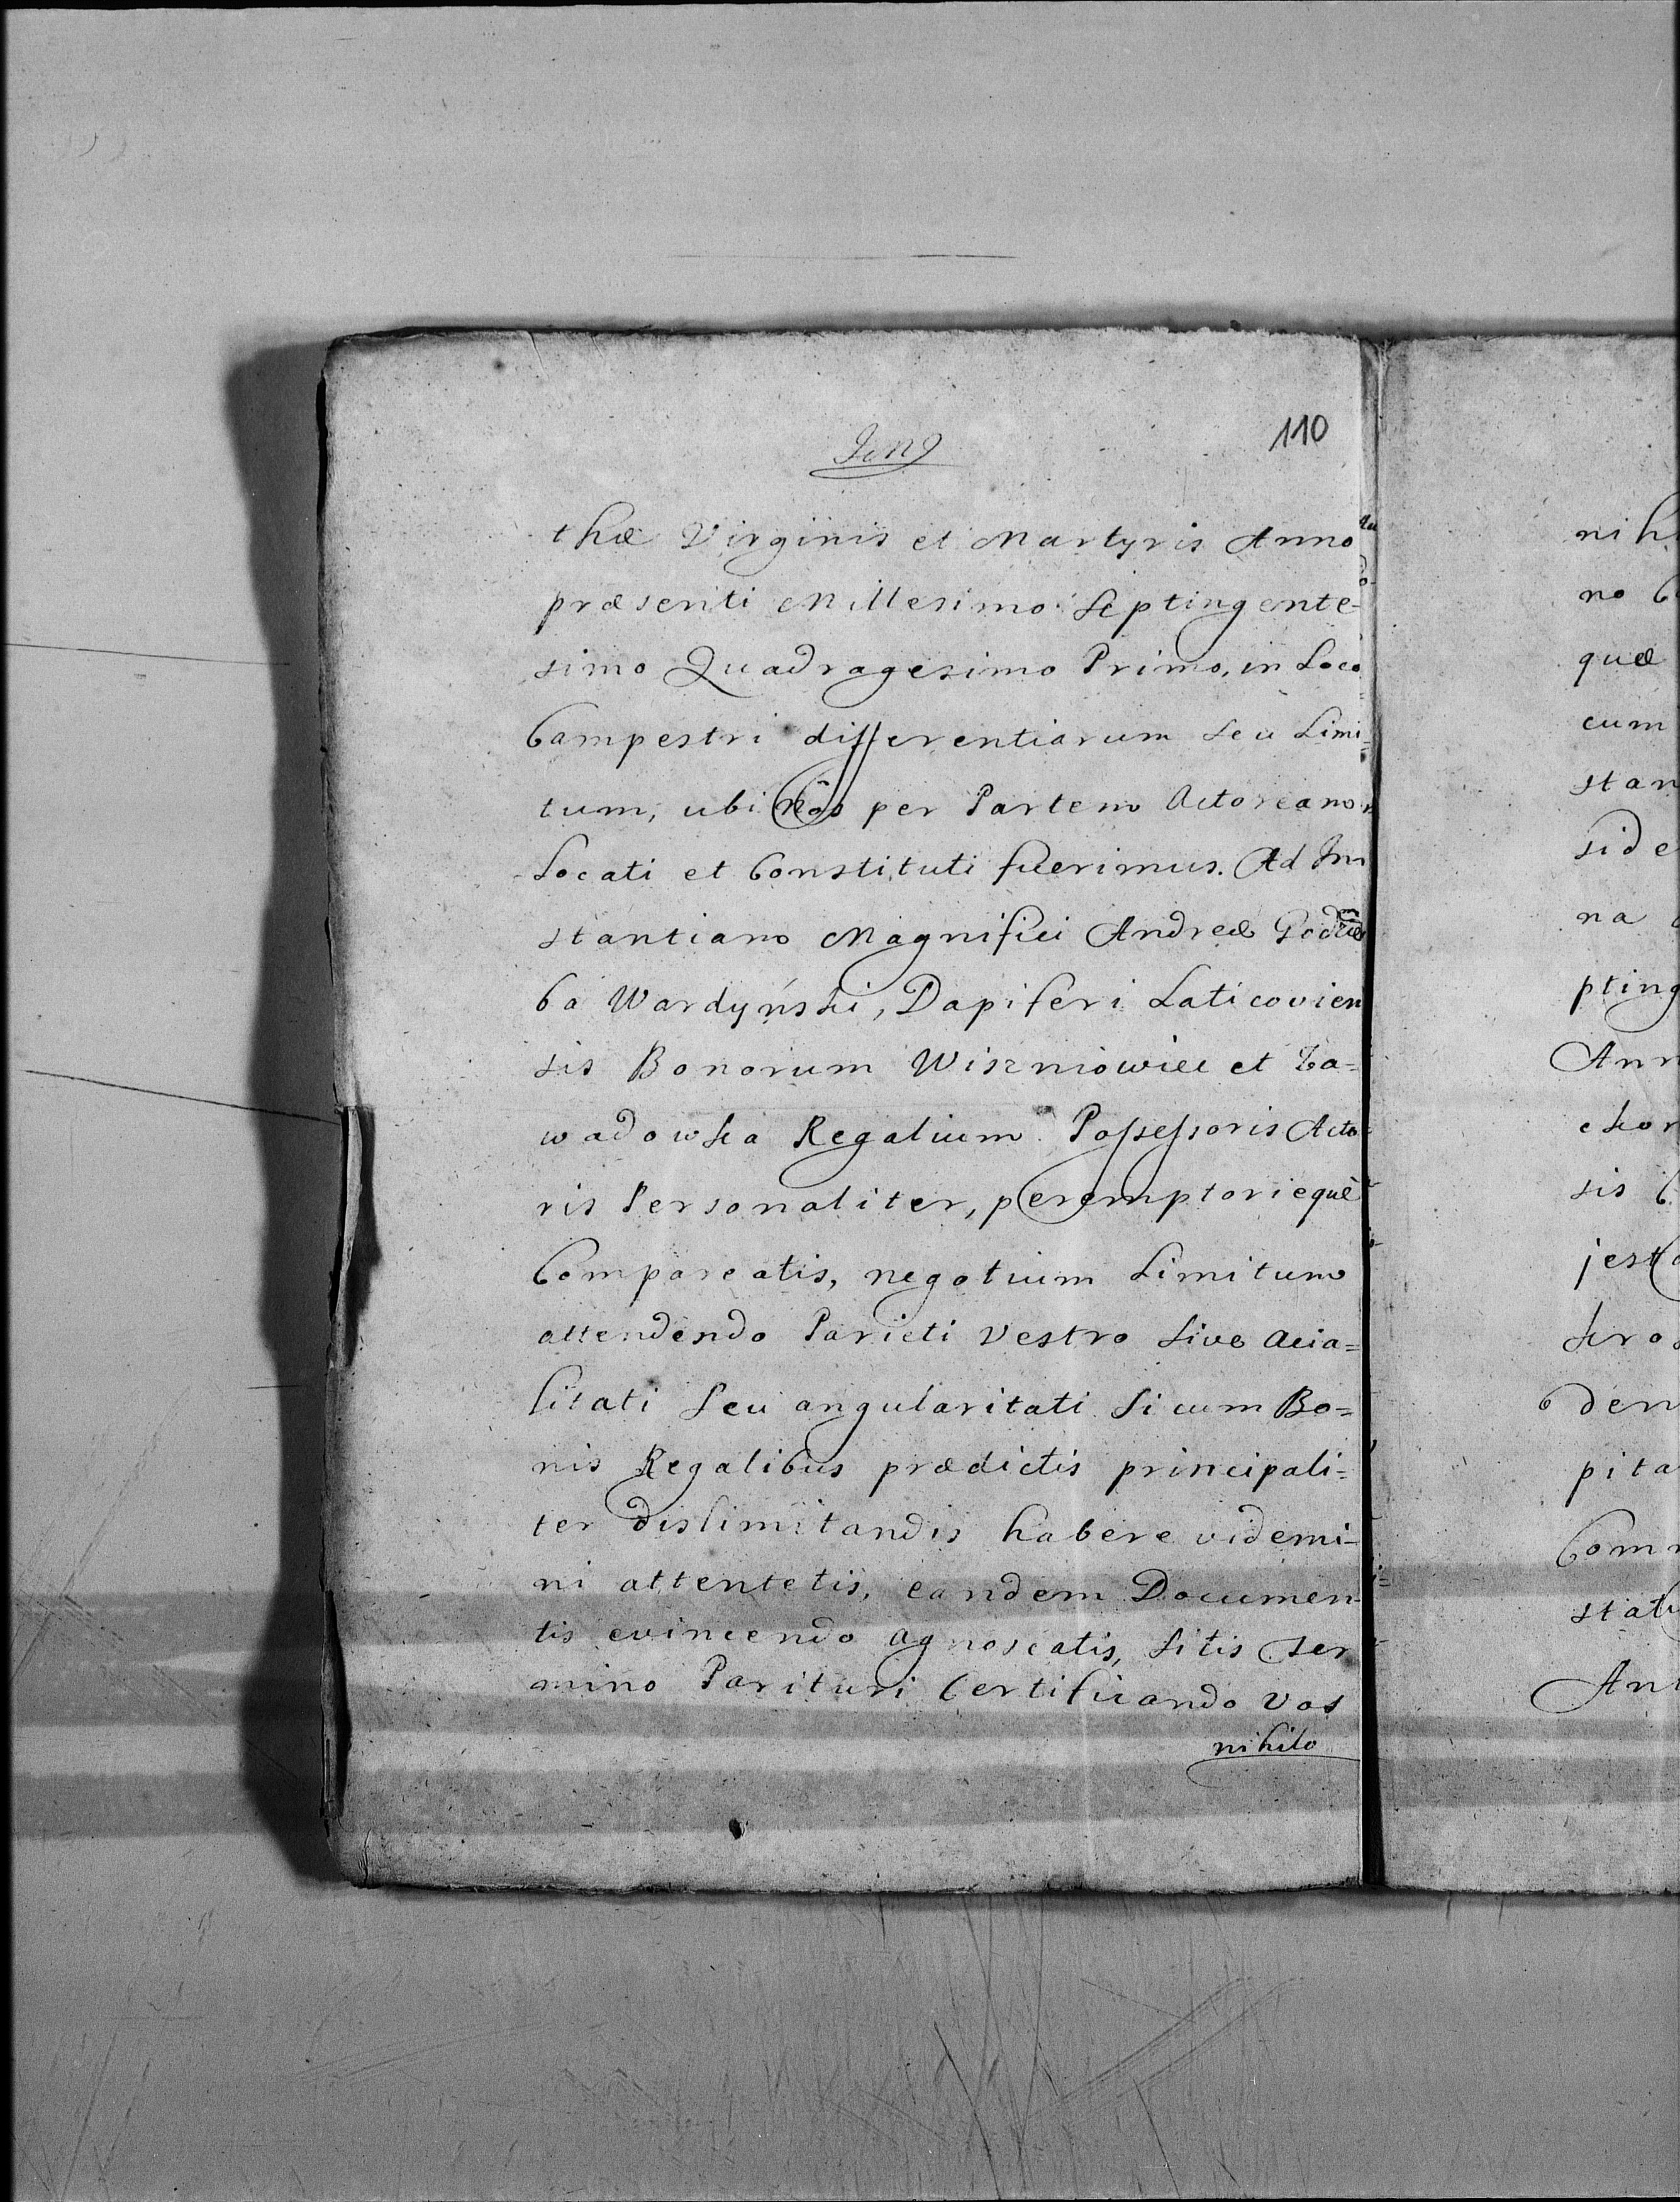 110
thæ Virginis et Martyris Anno
præsenti Millesimo Septingente-
simo Quadragesimo Primo, in Loco
Campestri differentiarum seu Limi-
tum, ubi nos per Partem Actoream
Locati et Constituti fuerimus. Ad In-
stantiam Magnifici Andreæ
ba Wardyński, Dapiferi Laticovien
sis Bonorum Wiszniowiec et Za=
wadowka Regalium Possessoris Acto-
ris Personaliter, peremptorieque
Compareatis, negotium Limitum
attendendo Parieti vestro sive acia=
litati seu angularitati si cum Bo=
nis Regalibus prædictis principali=
ter dislimitandis habere videmi-
ni attentetis, eandem Documen-
tis evincendo agnoscatis, sitis Ter
mino Parituri Certificando vos
nihilo
nih
no
quæ
cum
stan
side
na
pting
Ann
chor
sis
jest
den
pita
Com
stat
Ant